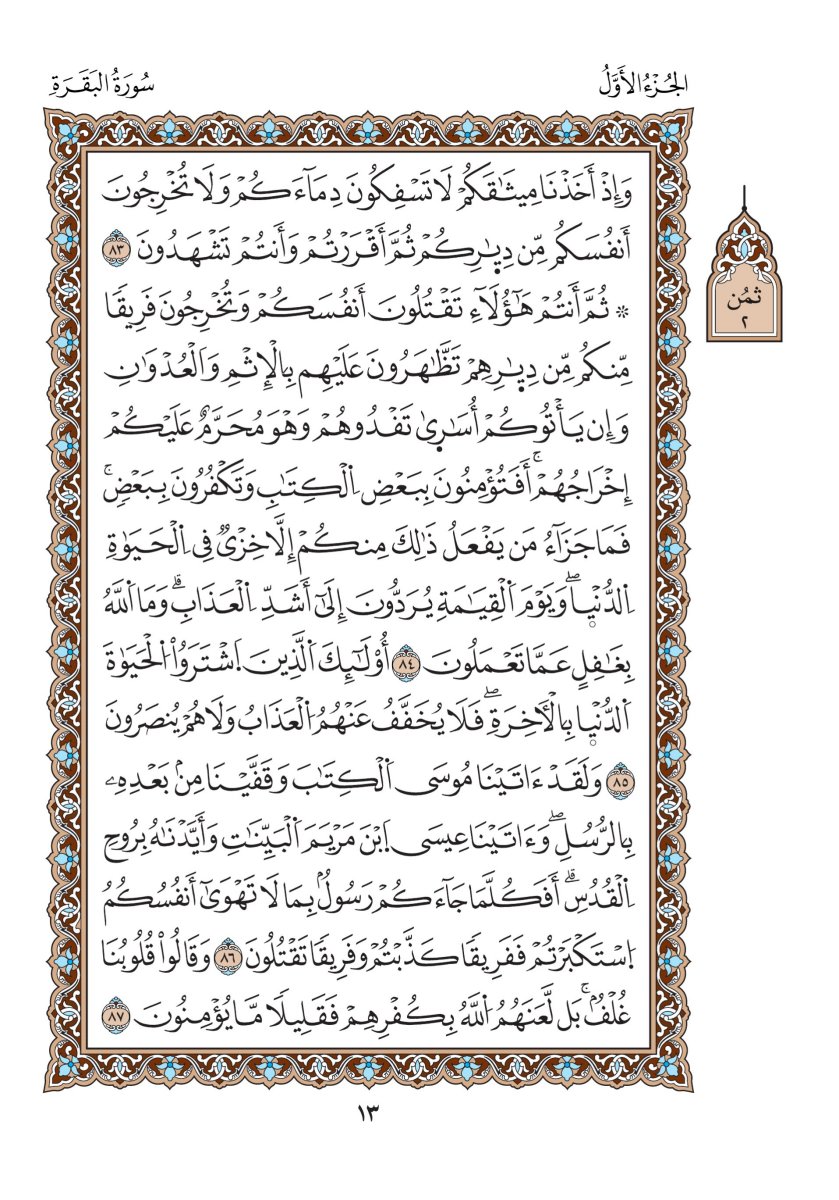 الجُزْءُ الأَوَّلُ
سُورَةُ البَقَرَةِ
وَإِذْ أَخَذْنَا مِيثَٰقَكُمْ لَا تَسْفِكُونَ دِمَآءَكُمْ وَلَا تُخْرِجُونَ
أَنفُسَكُم مِّن دِيٰ۪رِكُمْ ثُمَّ أَقْرَرْتُمْ وَأَنتُمْ تَشْهَدُونَ ٨٣
۞ ثُمَّ أَنتُمْ هَٰٓؤُلَآءِ تَقْتُلُونَ أَنفُسَكُمْ وَتُخْرِجُونَ فَرِيقًا
مِّنكُم مِّن دِيٰ۪رِهِمْ تَظَّٰهَرُونَ عَلَيْهِم بِالْإِثْمِ وَالْعُدْوَٰنِ
وَإِن يَأْتُوكُمْ أُسَٰر۪ىٰ تَفْدُوهُمْ وَهْوَ مُحَرَّمٌ عَلَيْكُمْ
إِخْرَاجُهُمْۚ أَفَتُؤْمِنُونَ بِبَعْضِ اِ۬لْكِتَٰبِ وَتَكْفُرُونَ بِبَعْضٖۚ
فَمَا جَزَآءُ مَن يَفْعَلُ ذَٰلِكَ مِنكُمْ إِلَّا خِزْيٞ فِى اِ۬لْحَيَوٰةِ
اِ۬لدُّنْي۪اۖ وَيَوْمَ اَ۬لْقِيَٰمَةِ يُرَدُّونَ إِلَىٰٓ أَشَدِّ اِ۬لْعَذَابِۗ وَمَا اَ۬للَّهُ
بِغَٰفِلٍ عَمَّا تَعْمَلُونَ ٨٤ أُوْلَٰٓئِكَ اَ۬لَّذِينَ اَ۪شْتَرَوُاْ اُ۬لْحَيَوٰةَ
اَ۬لدُّنْي۪ا بِالْأٓخِرَةِۖ فَلَا يُخَفَّفُ عَنْهُمُ اُ۬لْعَذَابُ وَلَا هُمْ يُنصَرُونَ
٨٥ وَلَقَدْ ءَاتَيْنَا مُوسَى اَ۬لْكِتَٰبَ وَقَفَّيْنَا مِنۢ بَعْدِهِۦ
بِالرُّسُلِۖ وَءَاتَيْنَا عِيسَى اَ۪بْنَ مَرْيَمَ اَ۬لْبَيِّنَٰتِ وَأَيَّدْنَٰهُ بِرُوحِ
اِ۬لْقُدُسِۗ أَفَكُلَّمَا جَآءَكُمْ رَسُولُۢ بِمَا لَا تَهْوَىٰٓ أَنفُسُكُمُ
اُ۪سْتَكْبَرْتُمْ فَفَرِيقٗا كَذَّبْتُمْ وَفَرِيقٗا تَقْتُلُونَ ٨٦ وَقَالُواْ قُلُوبُنَا
غُلْفُۢۚ بَل لَّعَنَهُمُ اُ۬للَّهُ بِكُفْرِهِمْ فَقَلِيلٗا مَّا يُؤْمِنُونَ ٨٧
ثمُن
٢
١٣